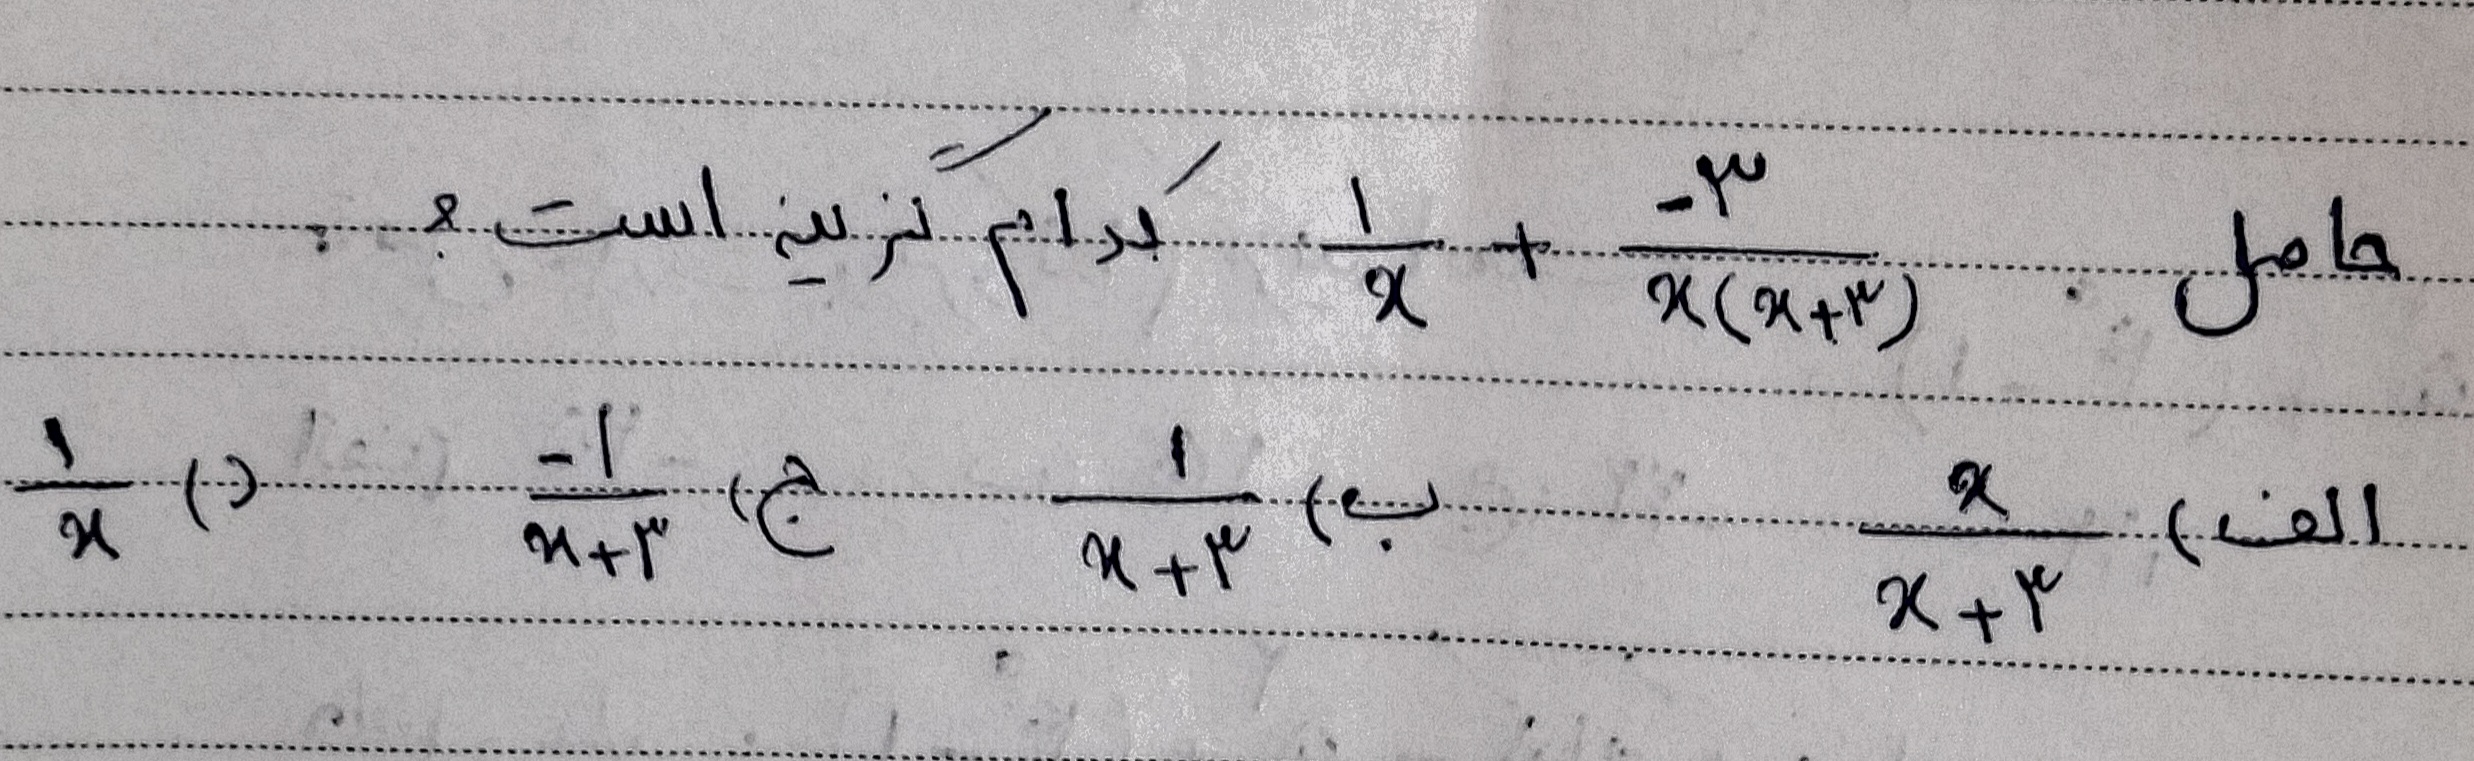 حاصل 1/x + -۳/x(x+۳) کدام گزینه است؟
الف) x/x+۳ ب) ۱/x+۳ ج) -۱/x+۳ د) ۱/x